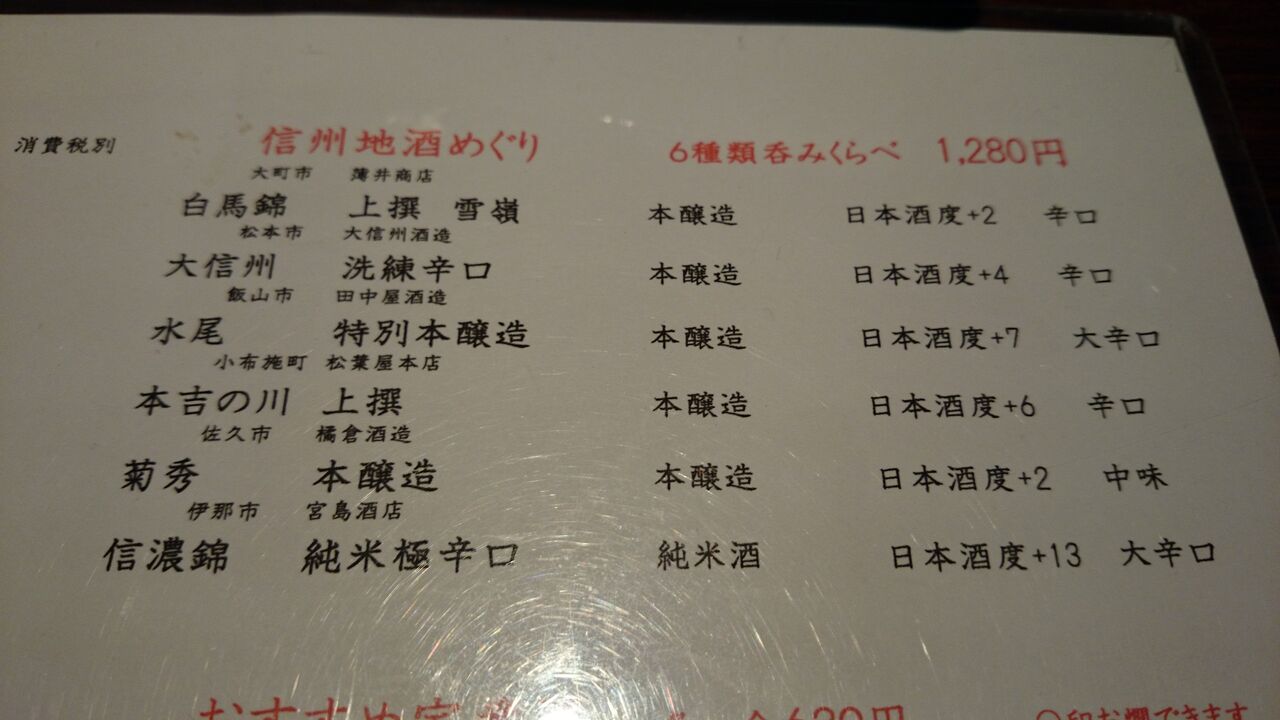 消費税別 信州地酒めぐり 6種類呑みくらべ 1,280円
大町市 薄井商店
白馬錦 上撰 雪嶺 本醸造 日本酒度+2 辛口
松本市 大信州酒造
大信州 洗練辛口 本醸造 日本酒度+4 辛口
飯山市 田中屋酒造
水尾 特別本醸造 本醸造 日本酒度+7 大辛口
小布施町 松葉屋本店
本吉の川 上撰 本醸造 日本酒度+6 辛口
佐久市 橘倉酒造
菊秀 本醸造 本醸造 日本酒度+2 中味
伊那市 宮島酒店
信濃錦 純米極辛口 純米酒 日本酒度+13 大辛口
おすすめ 630円 ○印お燗できます